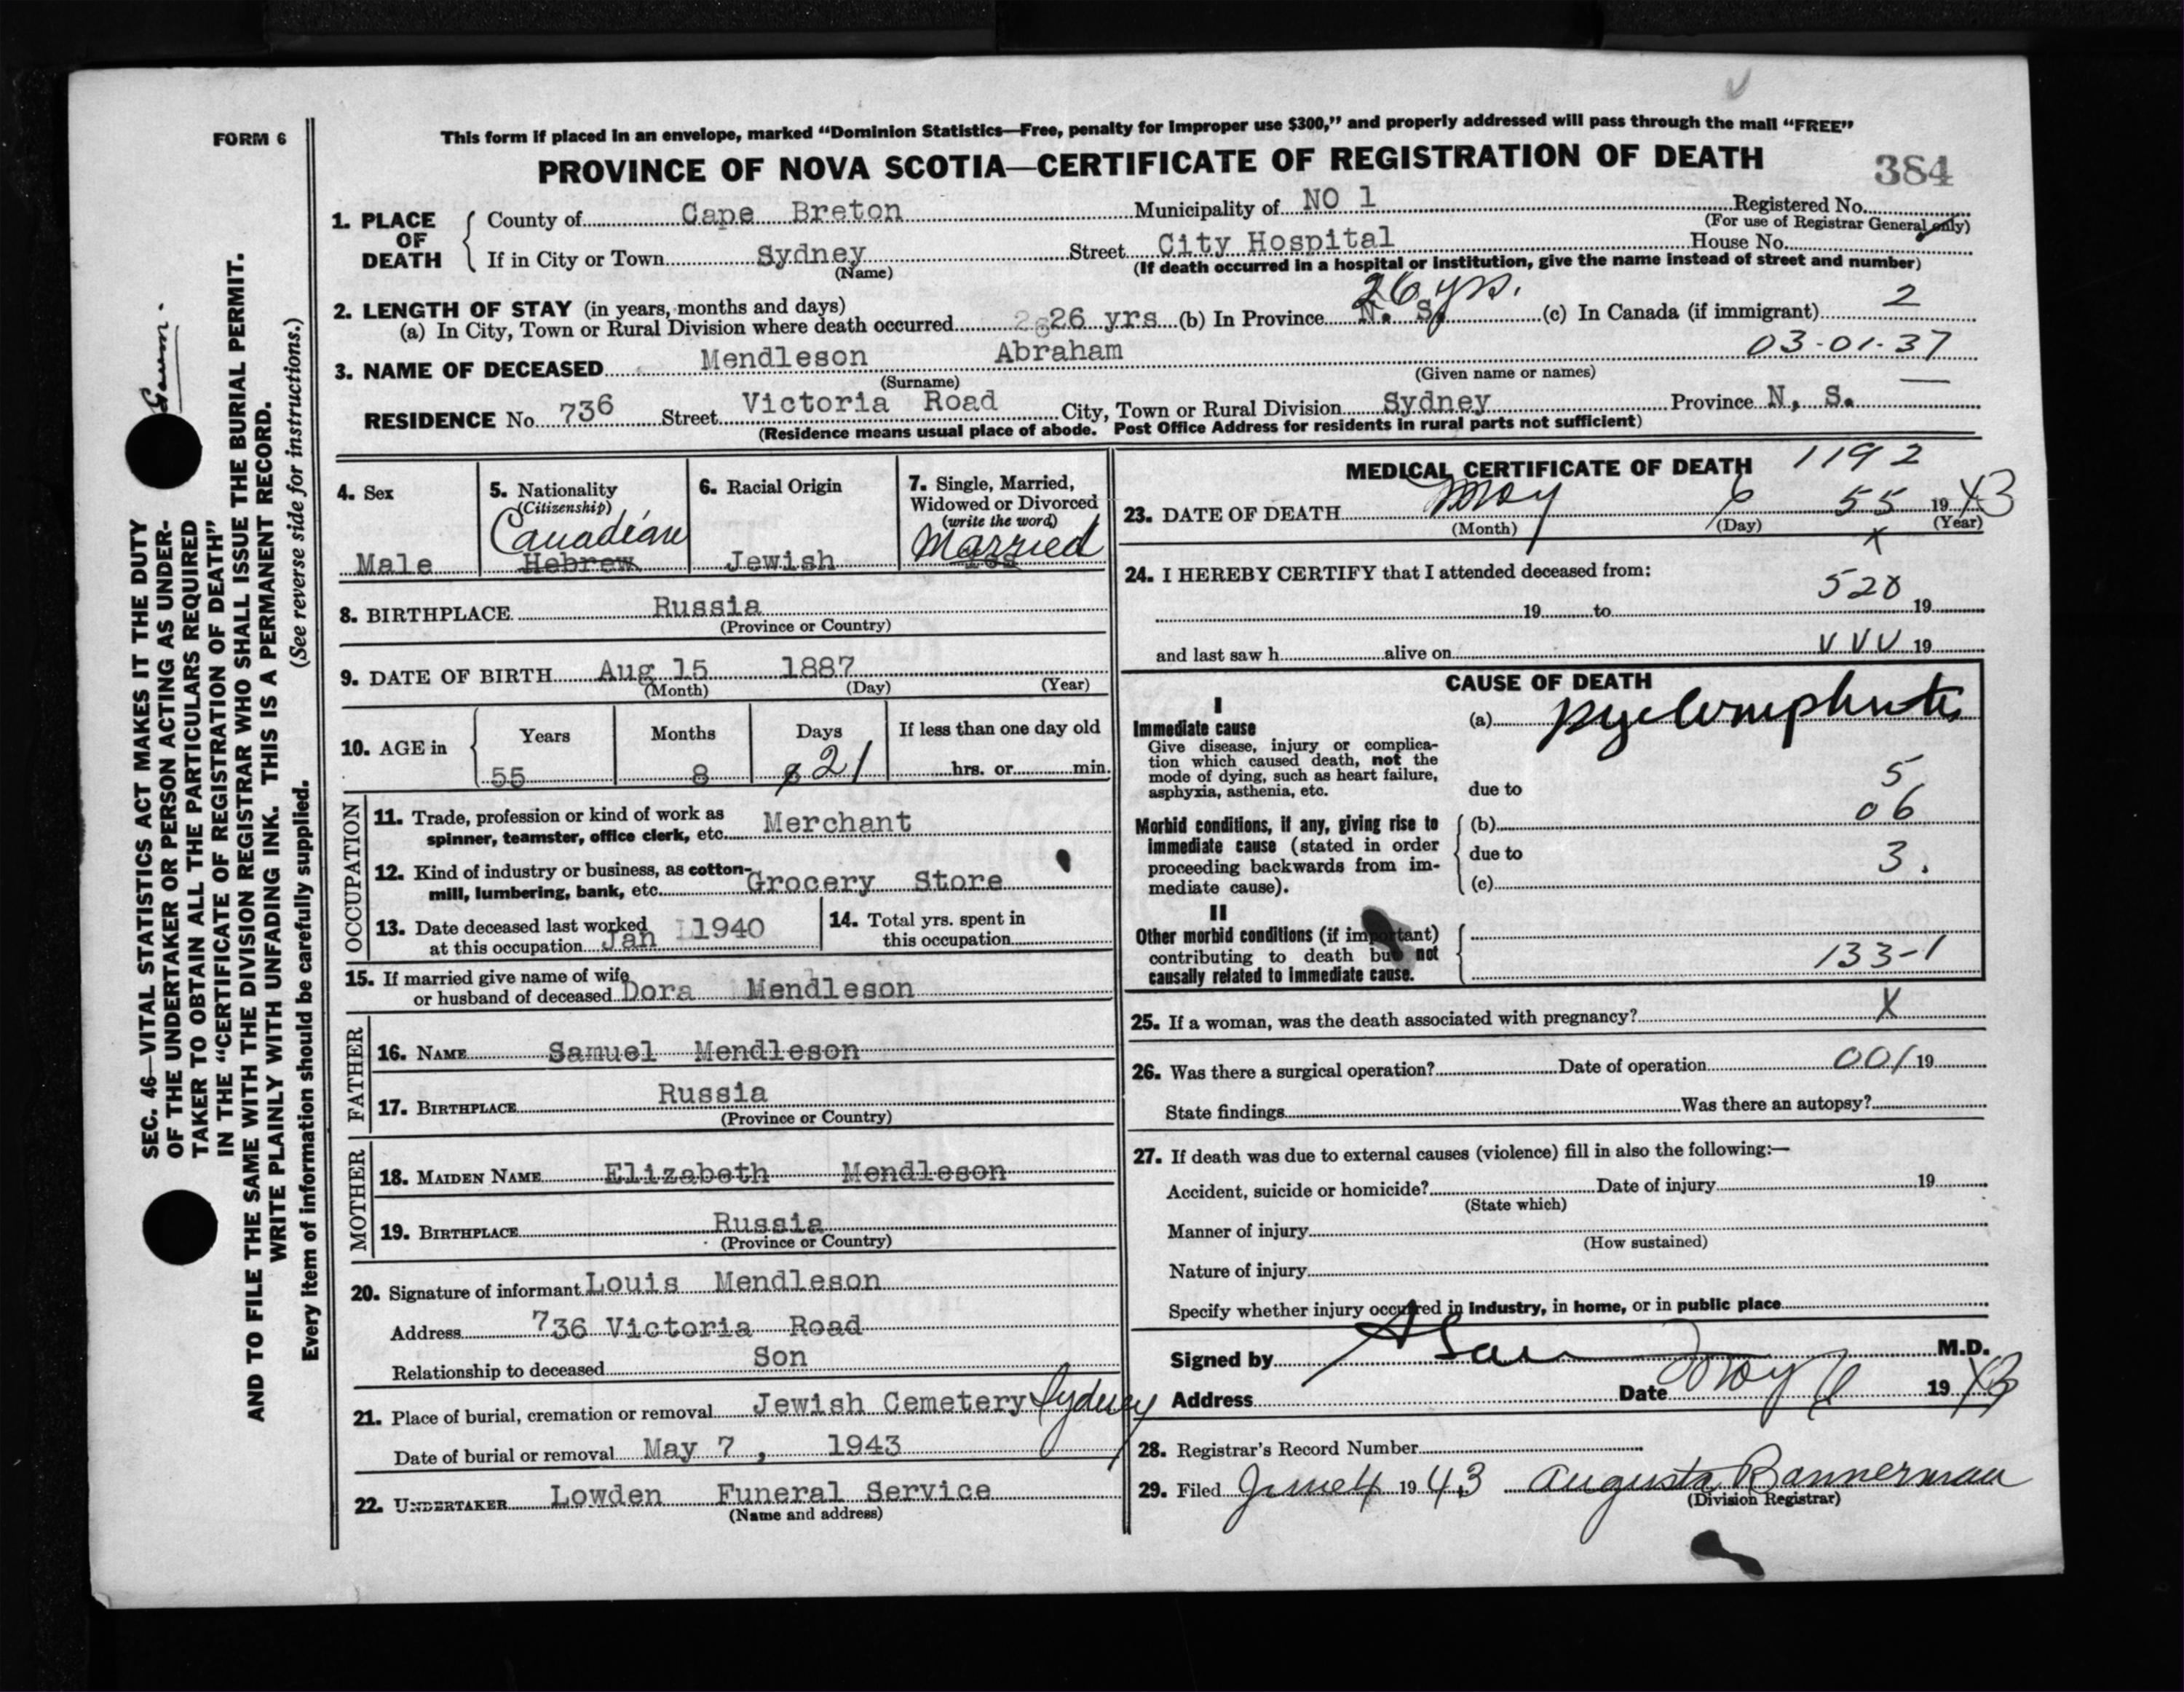 FORM 6
This form if placed in an envelope, marked “Dominion Statistics—Free, penalty for improper use $300,” and properly addressed will pass through the mail “FREE”
PROVINCE OF NOVA SCOTIA—CERTIFICATE OF REGISTRATION OF DEATH
384
1. PLACE OF DEATH
County of Cape Breton Municipality of NO 1 Registered No.
(For use of Registrar General only)
If in City or Town Sydney Street City Hospital House No.
(Name) (If death occurred in a hospital or institution, give the name instead of street and number)
2. LENGTH OF STAY (in years, months and days) 26 yrs.
(a) In City, Town or Rural Division where death occurred 26 yrs (b) In Province N. S. (c) In Canada (if immigrant) 2
03-01-37
3. NAME OF DECEASED Mendleson Abraham
(Surname) (Given name or names)
RESIDENCE No. 736 Street Victoria Road City, Town or Rural Division Sydney Province N, S.
(Residence means usual place of abode. Post Office Address for residents in rural parts not sufficient)
4. Sex
Male
5. Nationality
(Citizenship)
Canadian
Hebrew
6. Racial Origin
Jewish
7. Single, Married,
Widowed or Divorced
(write the word)
Married
8. BIRTHPLACE Russia
(Province or Country)
9. DATE OF BIRTH Aug 15 1887
(Month) (Day) (Year)
10. AGE in
Years Months Days If less than one day old
55 8 21 hrs. or min.
OCCUPATION
11. Trade, profession or kind of work as
spinner, teamster, office clerk, etc. Merchant
12. Kind of industry or business, as cotton-
mill, lumbering, bank, etc. Grocery Store
13. Date deceased last worked
at this occupation Jan 1940
14. Total yrs. spent in
this occupation
15. If married give name of wife
or husband of deceased Dora Mendleson
FATHER
16. NAME Samuel Mendleson
17. BIRTHPLACE Russia
(Province or Country)
MOTHER
18. MAIDEN NAME Elizabeth Mendleson
19. BIRTHPLACE Russia
(Province or Country)
20. Signature of informant Louis Mendleson
Address 736 Victoria Road
Relationship to deceased Son
21. Place of burial, cremation or removal Jewish Cemetery Sydney
Date of burial or removal May 7, 1943
22. UNDERTAKER Lowden Funeral Service
(Name and address)
MEDICAL CERTIFICATE OF DEATH 1192
23. DATE OF DEATH May 6 55 1943
(Month) (Day) (Year)
X
24. I HEREBY CERTIFY that I attended deceased from:
520
19 to 19
and last saw h alive on V V V 19
CAUSE OF DEATH
I
Immediate cause
Give disease, injury or complica-
tion which caused death, not the
mode of dying, such as heart failure,
asphyxia, asthenia, etc.
(a)
due to 5
06
Morbid conditions, if any, giving rise to
immediate cause (stated in order
proceeding backwards from im-
mediate cause).
(b)
due to 3.
(c)
II
Other morbid conditions (if important)
contributing to death but not
causally related to immediate cause.
133-1
25. If a woman, was the death associated with pregnancy? X
26. Was there a surgical operation? Date of operation 001 19
State findings Was there an autopsy?
27. If death was due to external causes (violence) fill in also the following:—
Accident, suicide or homicide? Date of injury 19
(State which)
Manner of injury
(How sustained)
Nature of injury
Specify whether injury occurred in industry, in home, or in public place
Signed by M.D.
Address Date May 6 1943
28. Registrar's Record Number
29. Filed June 4 1943 Augusta Bannerman
(Division Registrar)
SEC. 46—VITAL STATISTICS ACT MAKES IT THE DUTY
OF THE UNDERTAKER OR PERSON ACTING AS UNDER-
TAKER TO OBTAIN ALL THE PARTICULARS REQUIRED
IN THE “CERTIFICATE OF REGISTRATION OF DEATH”
AND TO FILE THE SAME WITH THE DIVISION REGISTRAR WHO SHALL ISSUE THE BURIAL PERMIT.
WRITE PLAINLY WITH UNFADING INK. THIS IS A PERMANENT RECORD.
Every item of information should be carefully supplied. (See reverse side for instructions.)